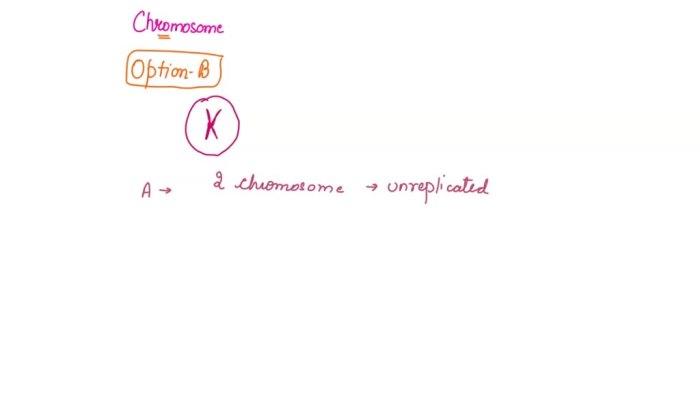 Chromosome
Option-B
A → 2 chromosome → unreplicated